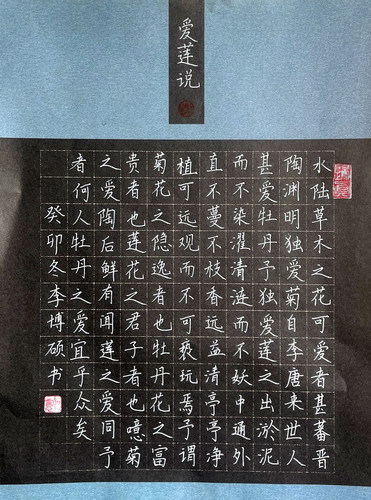 爱莲说
水陆草木之花可爱者甚蕃晋
陶渊明独爱菊自李唐来世人
甚爱牡丹予独爱莲之出淤泥
而不染濯清涟而不妖中通外
直不蔓不枝香远益清亭亭净
植可远观而不可亵玩焉予谓
菊花之隐逸者也牡丹花之富
贵者也莲花之君子者也噫菊
之爱陶后鲜有闻莲之爱同予
者何人牡丹之爱宜乎众矣
癸卯冬李博硕书